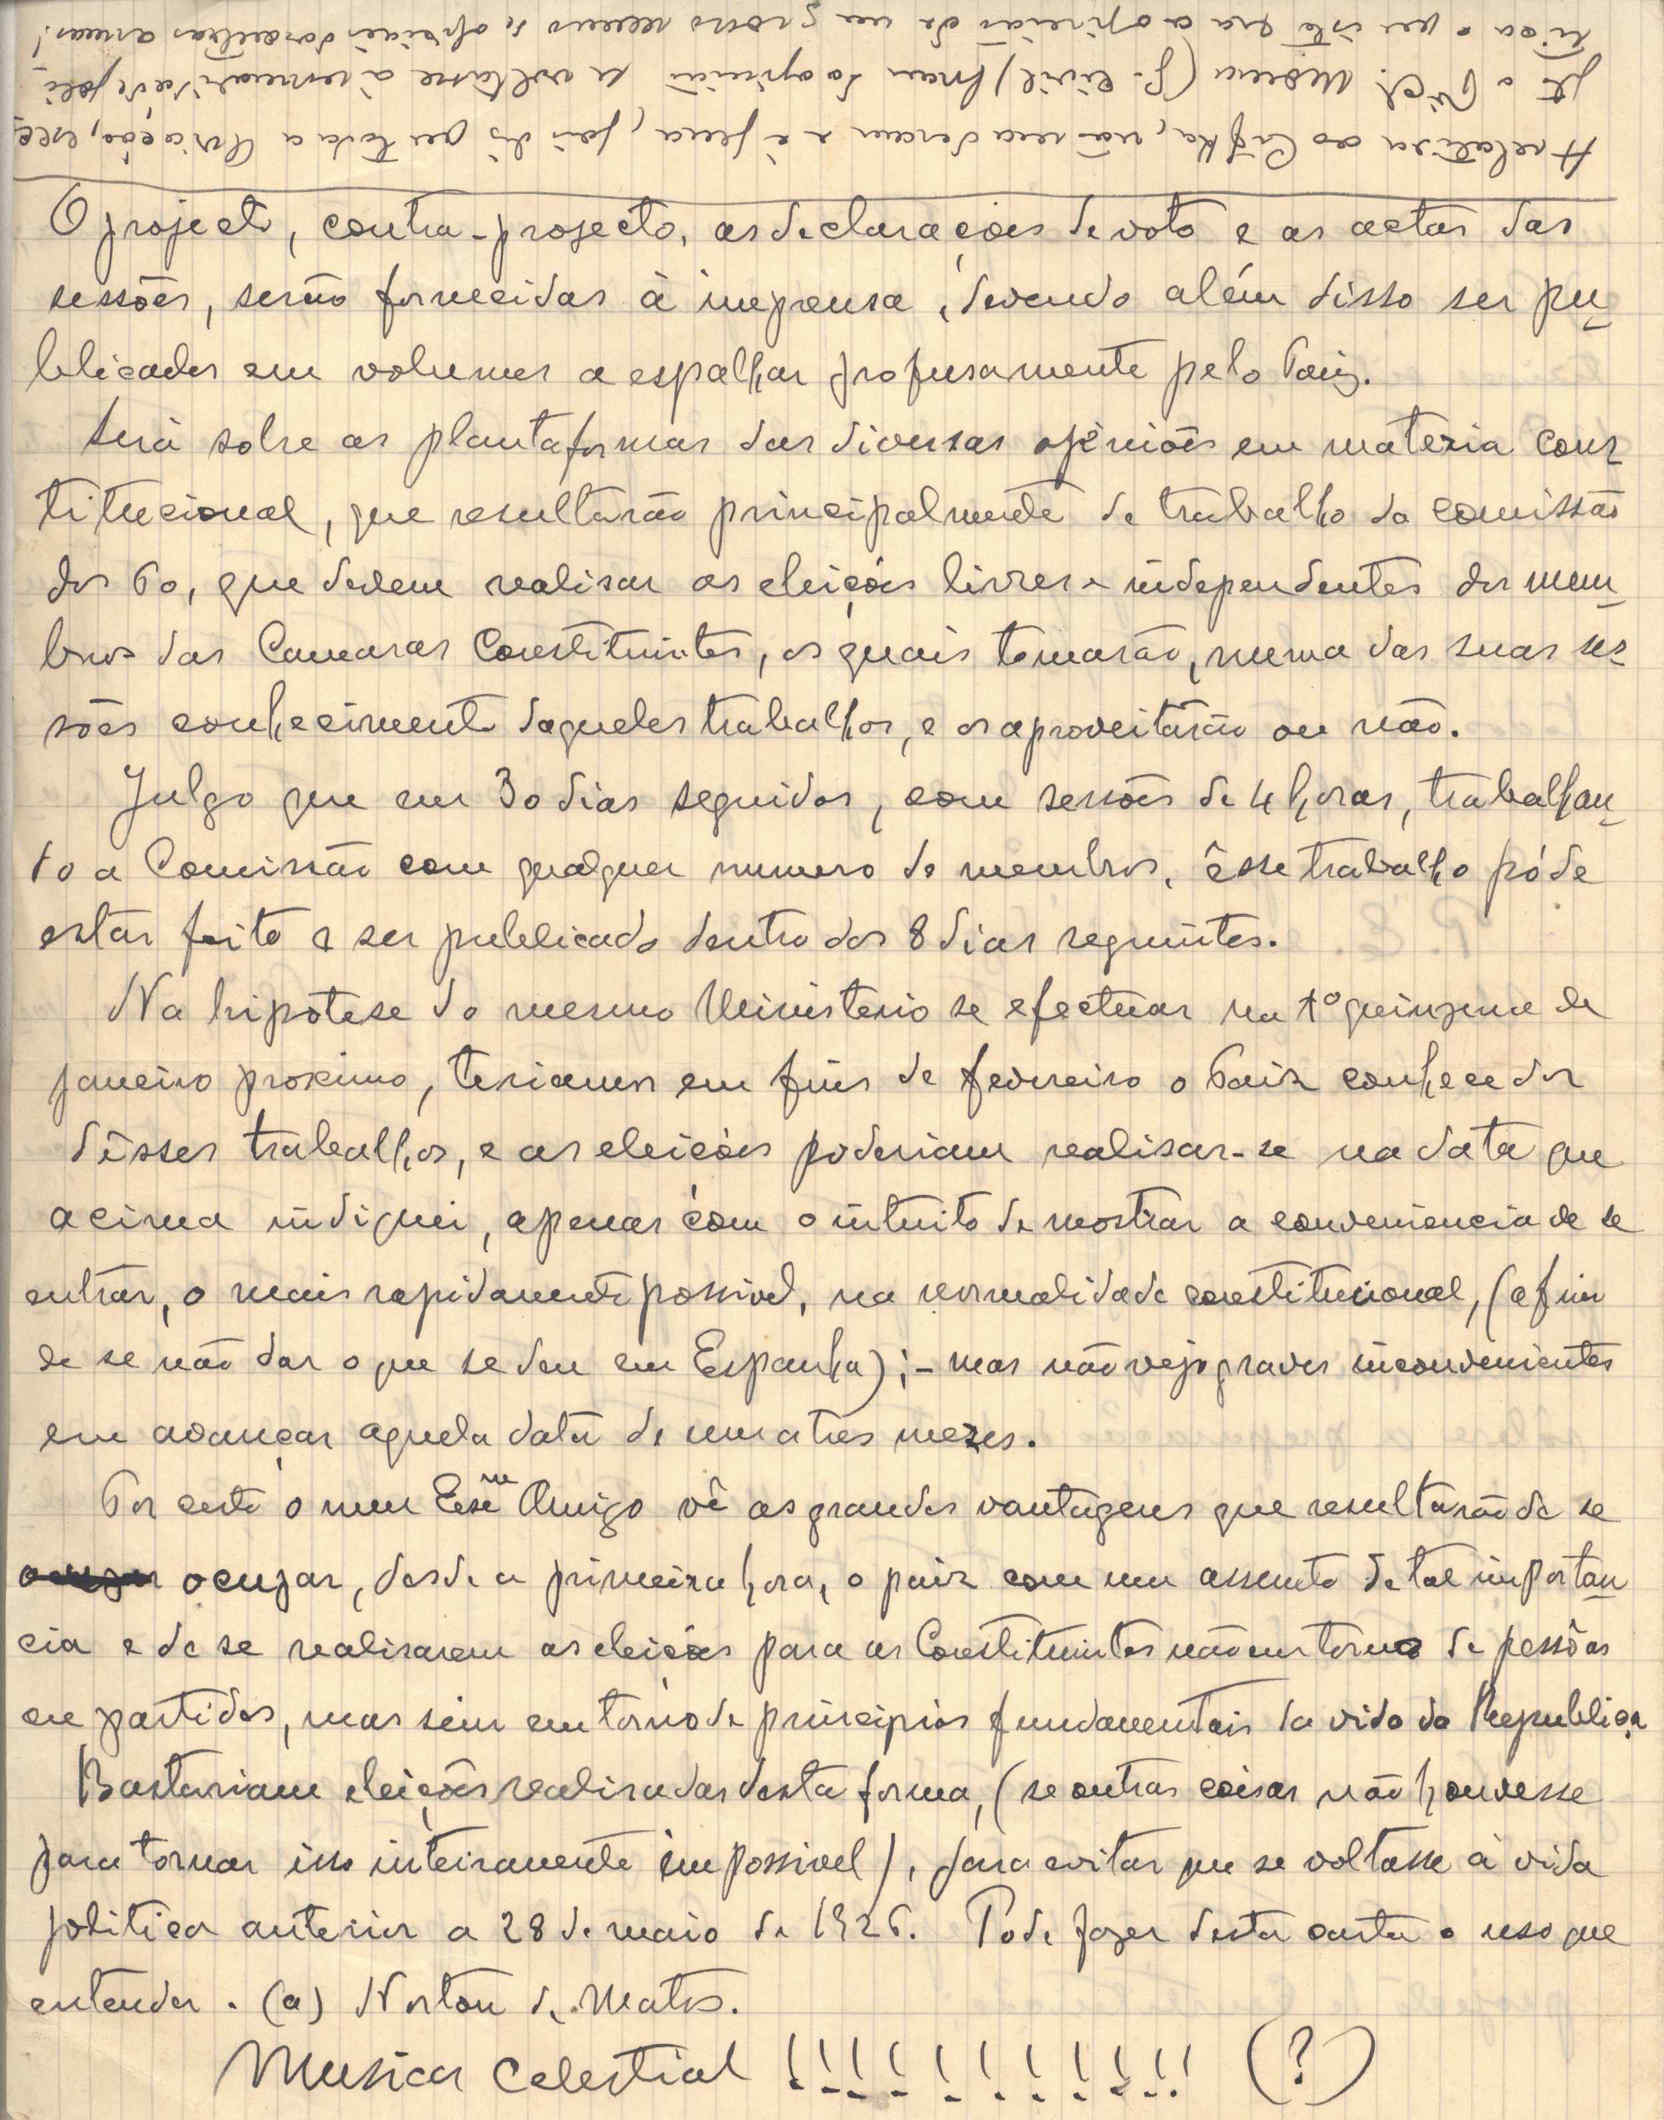 A relativa ao Cifka, não ma deram e é pena, pois diz que toda a Aviação, exc
to o Vict. Moreira (g. civil) eram da opinião de voltasse à normalidade poli
tica e que esta era a opinião de um grosso numero de oficiais doutras armas!
O projecto, contra-projecto, as declarações de voto e as actas das
sessões, serão fornecidas à imprensa, devendo além disso ser pu-
blicados em volumes a espalhar profusamente pelo Paiz.
Será sobre as plantaformas das diversas opiniões em materia cons-
titucional, que resultarão principalmente do trabalho da comissão
dos 60, que devem realisar as eleições livres e independentes dos mem-
bros das Camaras Constituintes, os quais tomarão, numa das suas ses-
sões conhecimento daqueles trabalhos, e os aproveitarão ou não.
Julgo que em 30 dias seguidos, com sessões de 4 horas, trabalhan-
do a Comissão com qualquer numero de membros, êsse trabalho póde
estar feito e ser publicado dentro dos 8 dias seguintes.
Na hipotese do mesmo Ministerio se efectuar na 1ª quinzena de
janeiro proximo, teriamos em fins de fevereiro o Paiz conhecedor
dêsses trabalhos, e as eleições poderiam realisar-se na data que
acima indiquei, apenas com o intuito de mostrar a conveniencia de se
entrar, o mais rapidamente possivel, na normalidade constitucional, (afim
de se não dar o que se deu em Espanha); - mas não vejo graves inconvenientes
em avançar aquela data de um a tres mezes.
Por certo o meu Exmº Amigo vê as grandes vantagens que resultarão de se
ocupar, desde a primeira hora, o paiz com um assunto de tal importan-
cia e de se realisarem as eleições para as Constituintes não em torno de pessôas
ou partidos, mas sim em torno de principios fundamentais da vida da Republica.
Bastariam eleições realisadas desta forma, (se outras coisas não houvesse
para tornar isso inteiramente impossivel), para evitar que se voltasse à vida
politica anterior a 28 de maio de 1926. Pode fazer desta carta o uso que
entender. (a) Norton de Matos.
Musica Celestial !!!!!!!!!!!! (?)